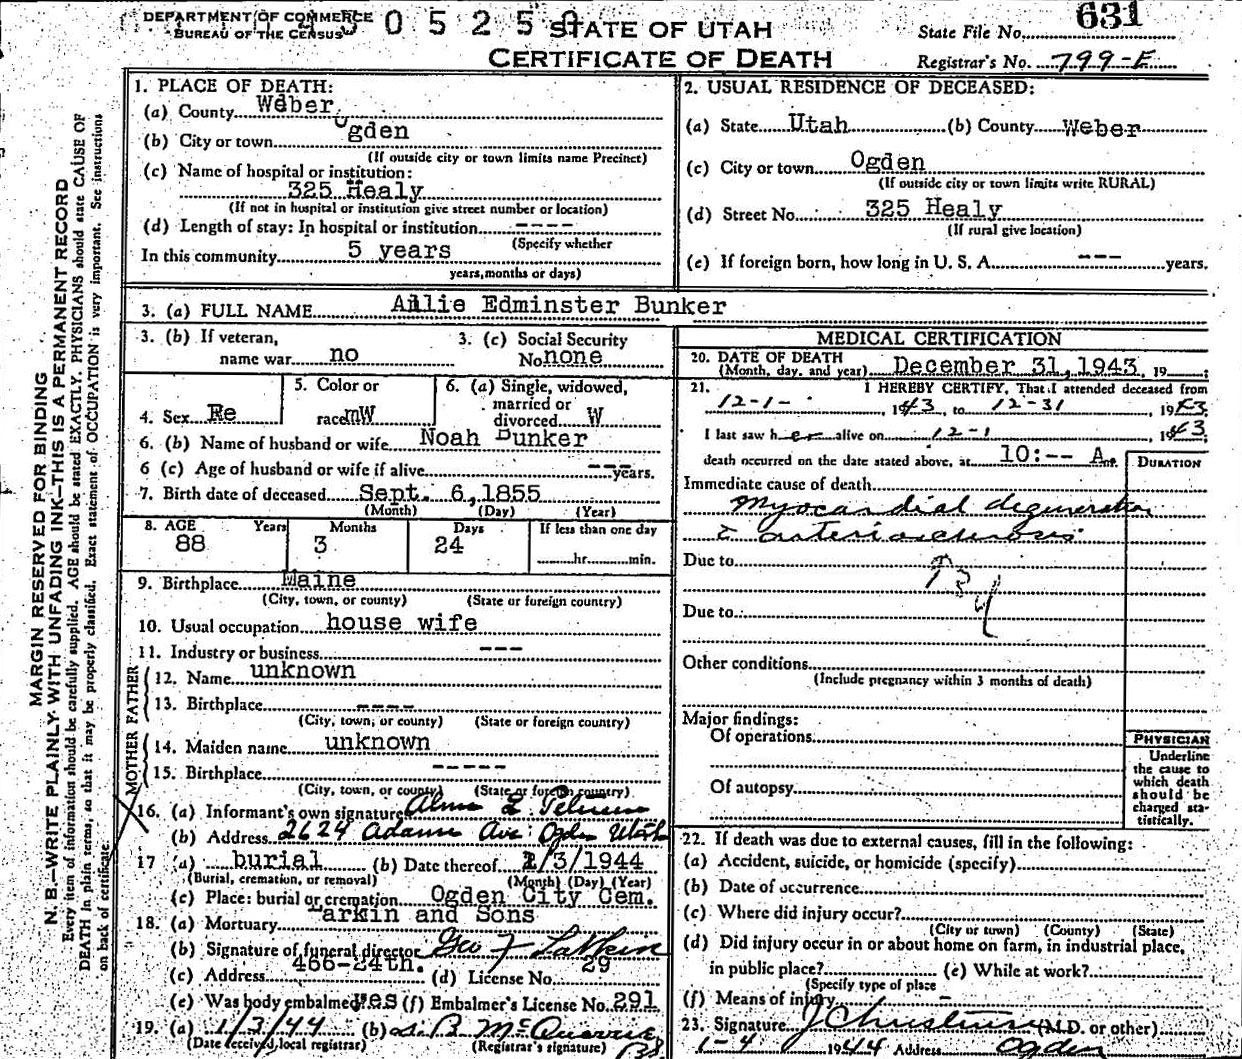 DEPARTMENT OF COMMERCE
BUREAU OF THE CENSUS
0 5 2 5
STATE OF UTAH
CERTIFICATE OF DEATH
State File No. 631
Registrar's No. 799-E
MARGIN RESERVED FOR BINDING
N. B.—WRITE PLAINLY WITH UNFADING INK—THIS IS A PERMANENT RECORD
Every item of information should be carefully supplied. AGE should be stated EXACTLY. PHYSICIANS should state CAUSE OF
DEATH in plain terms, so that it may be properly classified. Exact statement of OCCUPATION is very important. See instructions
on back of certificate.
1. PLACE OF DEATH:
(a) County Weber
(b) City or town Ogden
(If outside city or town limits name Precinct)
(c) Name of hospital or institution:
325 Healy
(If not in hospital or institution give street number or location)
(d) Length of stay: In hospital or institution ----
(Specify whether
In this community 5 years
years, months or days)
2. USUAL RESIDENCE OF DECEASED:
(a) State Utah (b) County Weber
(c) City or town Ogden
(If outside city or town limits write RURAL)
(d) Street No. 325 Healy
(If rural give location)
(e) If foreign born, how long in U. S. A. --- years.
3. (a) FULL NAME Allie Edminster Bunker
3. (b) If veteran,
name war no
3. (c) Social Security
No. none
4. Sex Fe
5. Color or
race mW
6. (a) Single, widowed,
married or
divorced W
6. (b) Name of husband or wife Noah Bunker
6 (c) Age of husband or wife if alive --- years.
7. Birth date of deceased Sept. 6, 1855
(Month) (Day) (Year)
8. AGE Years Months Days If less than one day
88 3 24 hr. min.
9. Birthplace Maine
(City, town, or county) (State or foreign country)
10. Usual occupation house wife
11. Industry or business ---
FATHER
12. Name unknown
13. Birthplace ----
(City, town, or county) (State or foreign country)
MOTHER
14. Maiden name unknown
15. Birthplace -----
(City, town, or county) (State or foreign country)
16. (a) Informant's own signature
(b) Address 2624 Adams Ave. Ogden Utah
17 (a) burial (b) Date thereof 1/3/1944
(Burial, cremation, or removal) (Month) (Day) (Year)
(c) Place: burial or cremation Ogden City Cem.
18. (a) Mortuary Larkin and Sons
(b) Signature of funeral director Geo F Larkin
(c) Address 466-24th. (d) License No. 29
(e) Was body embalmed? yes (f) Embalmer's License No. 291
19. (a) 1/3/44 (b)
(Date received, local registrar) (Registrar's signature)
MEDICAL CERTIFICATION
20. DATE OF DEATH
(Month, day, and year) December 31, 1943, 19
21. I HEREBY CERTIFY, That I attended deceased from
12-1-, 1943, to 12-31, 1943
I last saw her alive on 12-1, 1943
death occurred on the date stated above, at 10:-- A.
DURATION
Immediate cause of death
Myocardial degeneration
c arteriosclerosis
Due to
Due to
Other conditions
(Include pregnancy within 3 months of death)
Major findings:
Of operations
Of autopsy
PHYSICIAN
Underline
the cause to
which death
should be
charged sta-
tistically.
22. If death was due to external causes, fill in the following:
(a) Accident, suicide, or homicide (specify)
(b) Date of occurrence
(c) Where did injury occur?
(City or town) (County) (State)
(d) Did injury occur in or about home on farm, in industrial place,
in public place? (e) While at work?
(Specify type of place
(f) Means of injury
23. Signature (M.D. or other)
1-4 1944 Address Ogden